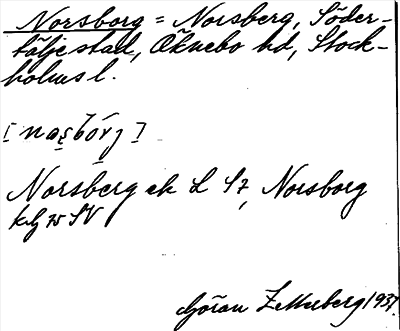 Norsborg = Norsberg, Söder-
tälje stad, Öknebo hd, Stock-
holms l.
Norsberg ek L S7, Norsborg
75 SV
Göran Zetterberg 1937.